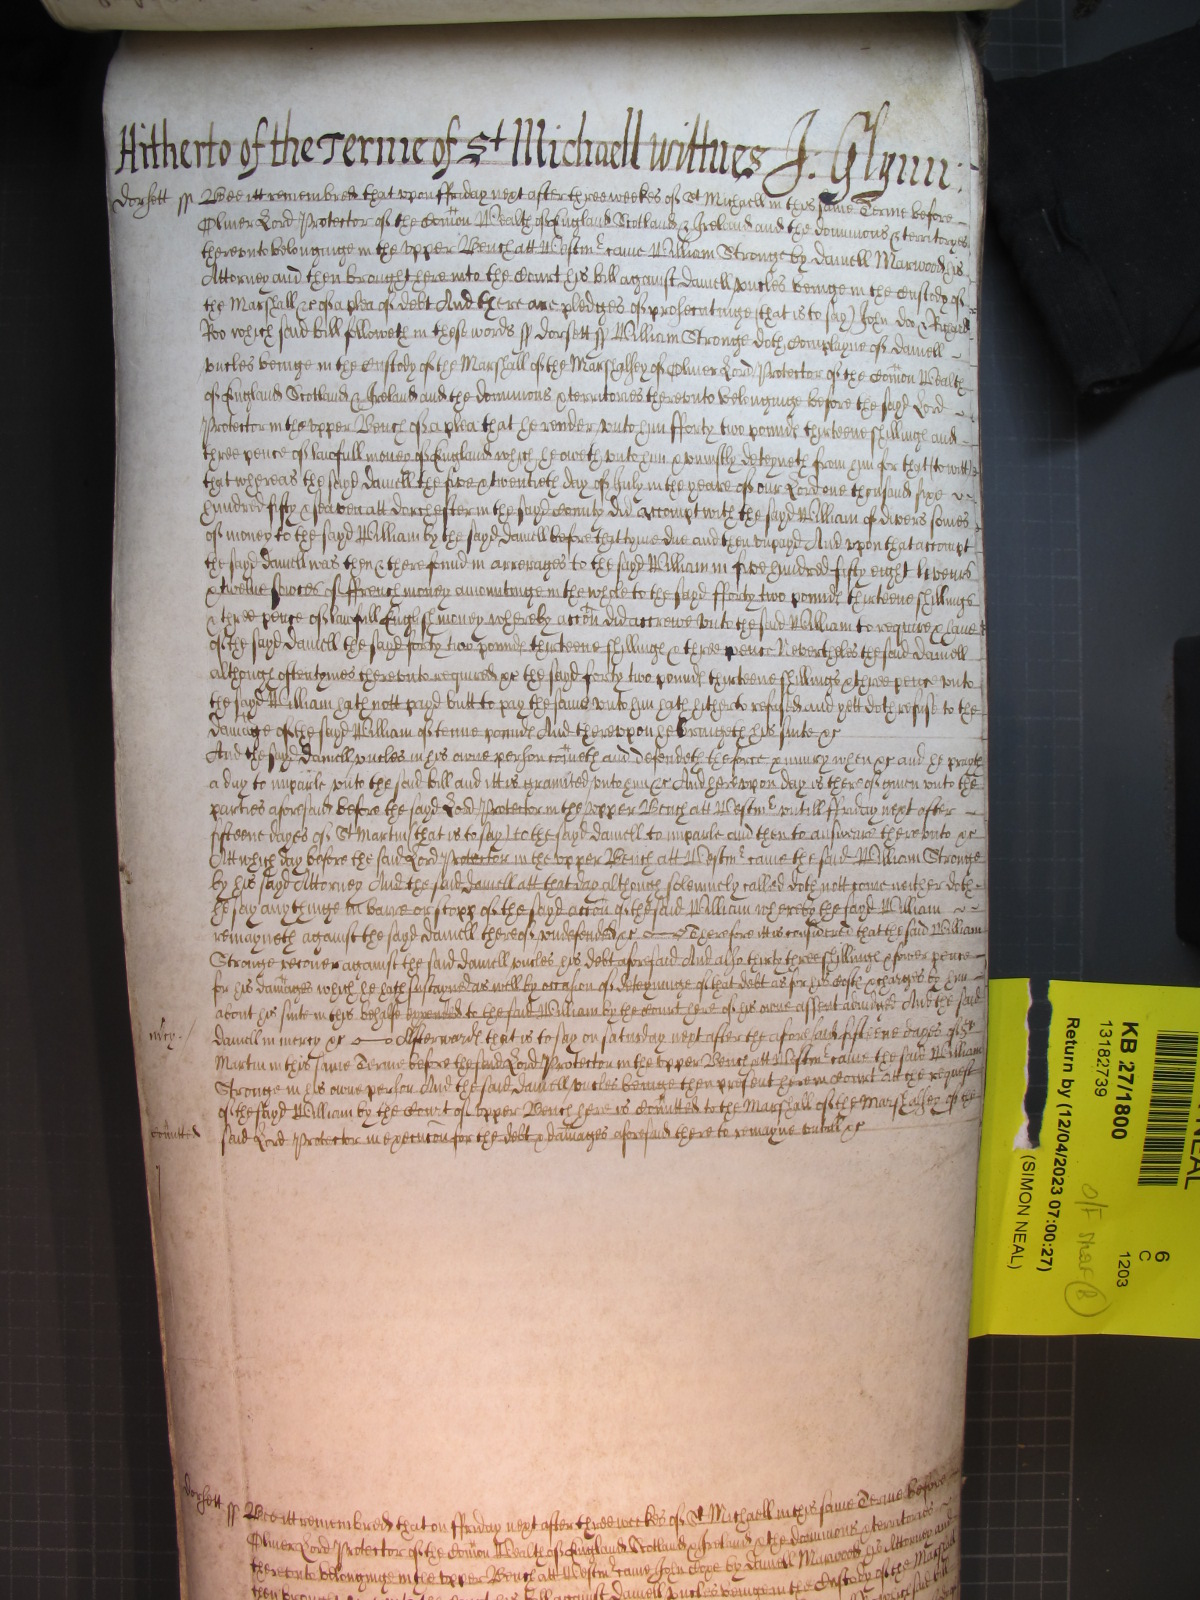 Hitherto of the Terme of St Michaell wittnes J: Glynn:
Dorsett ss Bee itt remembred that upon ffriday next after three weekes of St Michaell in this same Terme before
Oliver Lord Protector of the Com̄on Wealth of England Scotland & Ireland and the dominions & territoryes
thereunto belonginge in the Upper Bench att Westmr came William Stronge by Daniell Marwood his
Attorney and then brought here into the Court his bill against Daniell beinge in the Custody of
the Marshall &c of a plea of debt And there are pledges of prosecutinge (that is to say) John doe & Richard
Roo which said bill followeth in these words ss Dorsett ss William Stronge doth Complayne of Daniell
beinge in the Custody of the Marshall of the Marshalsey of Oliver Lord Protector of the Com̄on Wealth
of England Scotland & Ireland and the dominions & territories thereunto belonginge before the sayd Lord
Protector in the Upper Bench of a plea that he render unto him fforty two pounds thirteene shillings and
three pence of lawfull money of England which he oweth unto him & uniustly deteyneth from him for that (to witt)
that whereas the sayd Daniell the five & twentieth day of July in the yeare of our Lord one thousand sixe
hundred fifty & seaven att Dorchester in the sayd County did accompt with the sayd William of divers somes
of money to the sayd William by the sayd Daniell before that tyme due and then unpayd And upon that accompt
the sayd Daniell was then & there found in arrerages to the sayd William in five hundred fifty eight livres
& twelve of ffrench money amountinge in the whole to the sayd fforty two pounds thirteene shillings
& three pence of lawfull English money whereby acc̄on did accrewe unto the said William to require & have
of the sayd Daniell the sayd forty two pounds thirteene shillings & three pence Nevertheles the said Daniell
although oftentymes thereunto required &c the sayd forty two pounds thirteene shillings & three pence unto
the sayd William hath nott payd butt to pay the same unto him hath hitherto refused and yett doth refuse to the
damage of the sayd William of tenne pounds And thereupon he bringeth his suite &c
And the sayd Daniell in his owne person com̄eth and defendeth the force & iniury when &c and he prayeth
a day to imparle unto the said bill and itt is graunted unto him &c And hereupon day is thereof given unto the
parties aforesaid before the sayd Lord Protector in the Upper Bench att Westmr untill ffriday next after
fifteene dayes of St Martin (that is to say) to the sayd Daniell to imparle and then to answeare thereunto &c
Att which day before the said Lord Protector in the Upper Bench att Westmr came the said William Stronge
by his sayd Attorney And the said Daniell att that day although solemnely called doth nott come neither doth
he say any thinge in barre or stopp of the sayd acc̄on of the said William whereby the sayd William
remayneth against the sayd Daniell thereof undefended &c Therefore itt is considered that the said William
Stronge recover against the said Daniell his debt aforesaid And also thirty three shillings & fower pence
for his dam̄ages which he hath susteyned as well by occasion of deteyninge of that debt as for his Costs & charges by him
about his suite in this behalfe expended to the said William by the Court here of his owne assent adiudged And the said
mercy / Daniell in mercy &c Afterwards that is to say on Saturday next after the aforesaid fifteene dayes of St
Martin in this same Terme before the said Lord Protector in the Upper Bench att Westmr came the said William
Stronge in his owne person And the said Daniell beinge then present here in Court Att the request
of the sayd William by the Court of Upper Bench here is Com̄itted to the Marshall of the Marshalsey of the
Com̄itted said Lord Protector in execution for the debt & dam̄ages aforesaid there to remayne untill &c
Dorsett ss Bee itt remembred that on ffriday next after three weekes of St Michaell in this same Terme before
Oliver Lord Protector of the Com̄on Wealth of England Scotland & Ireland & the dominions & territories
thereunto belonginge in the Upper Bench att Westmr came John by Daniell Marwood his Attorney and
beinge in the Custody of the Marshall
KB 27/1800
13182739
Return by (12/04/2023 07:00:27)
(SIMON NEAL)
6
C
1203
NEAL